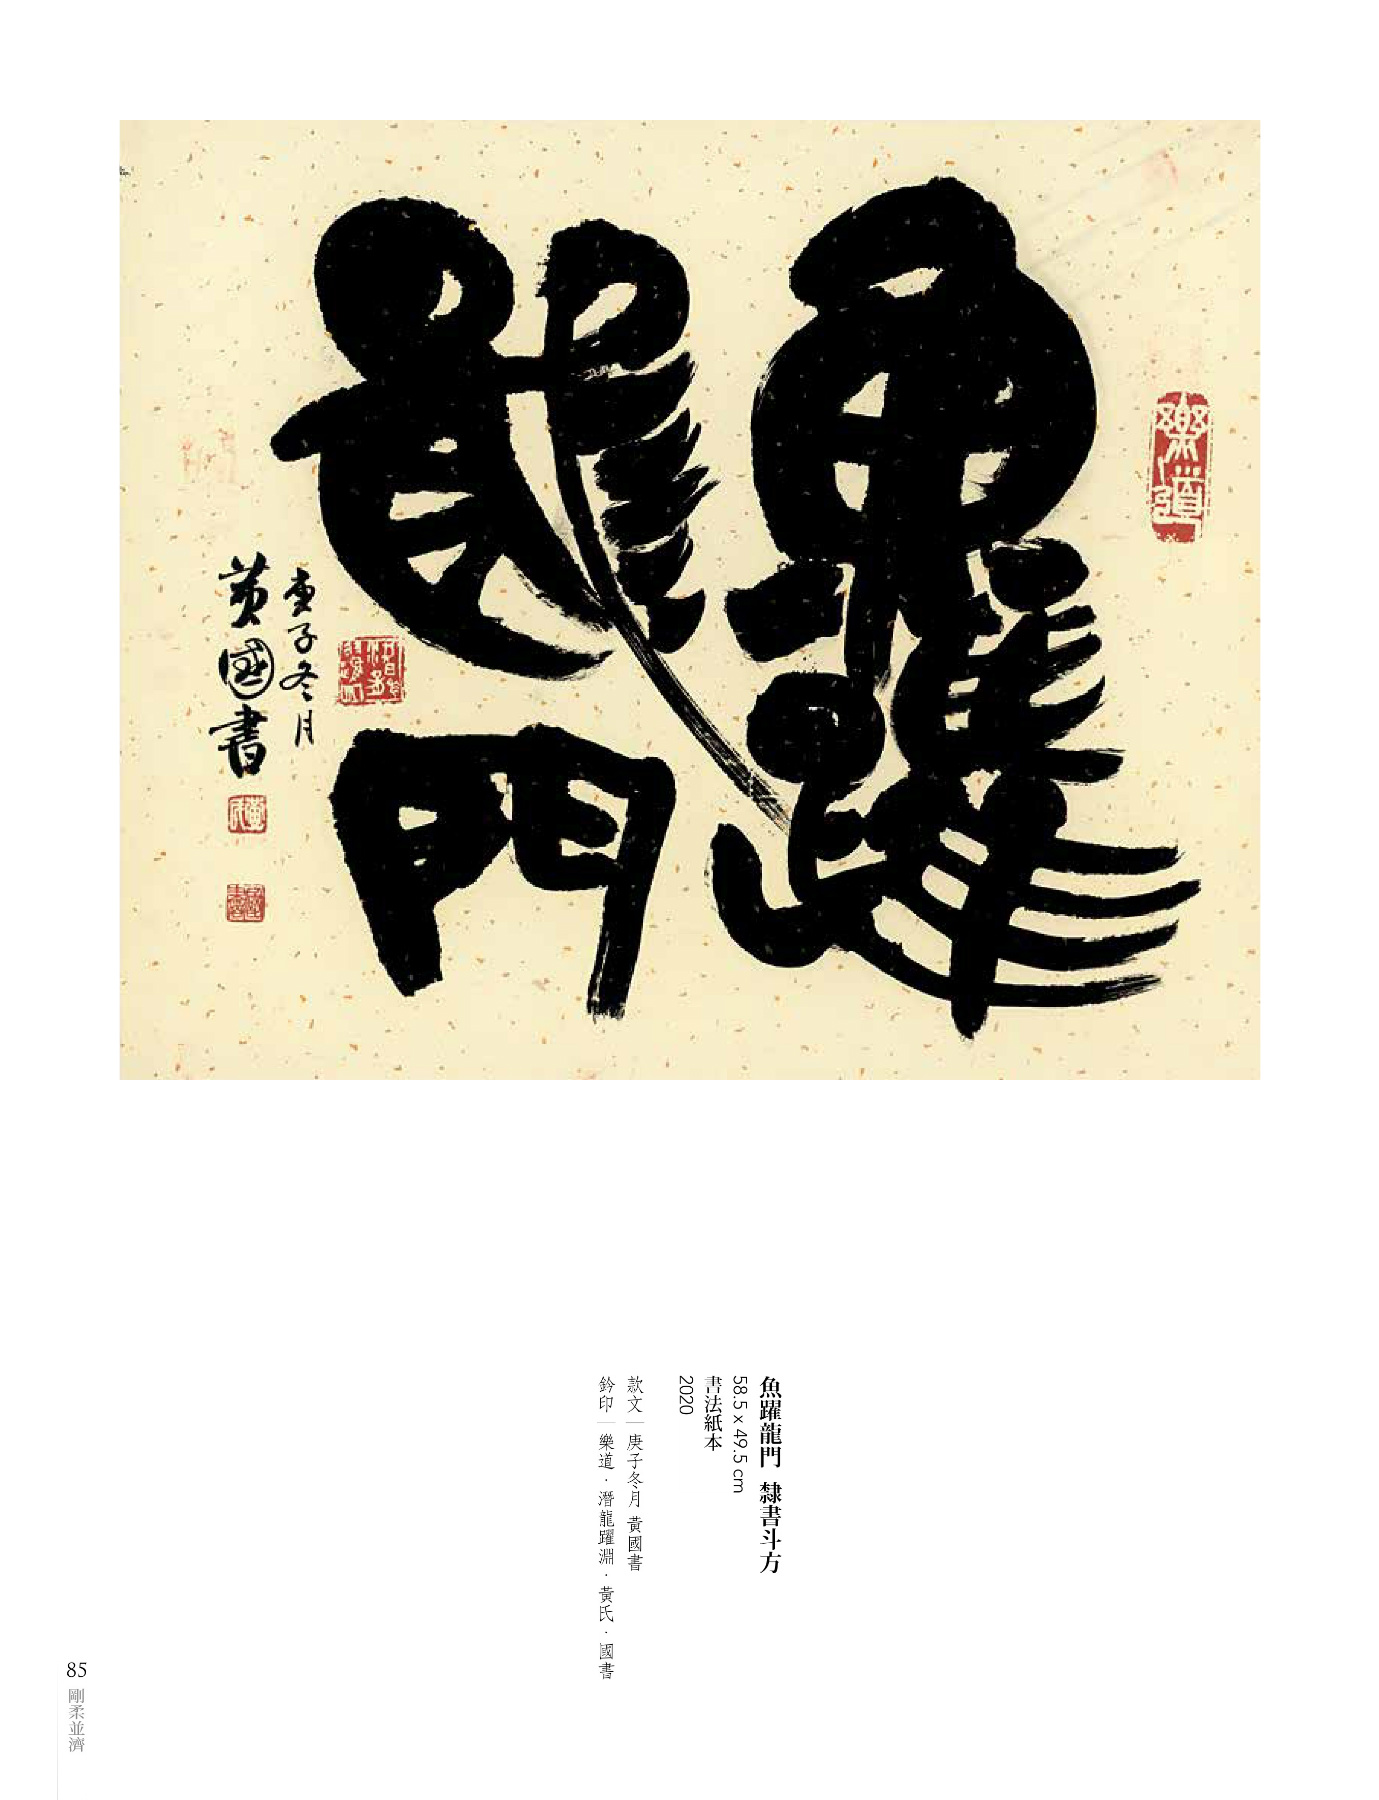 魚躍
龍門
庚子冬月
黃國書
樂道
潛龍躍淵
黃氏
國書
魚躍龍門 隸書斗方
58.5 x 49.5 cm
書法紙本
2020
款文｜庚子冬月 黃國書
鈐印｜樂道．潛龍躍淵．黃氏．國書
85
剛柔並濟